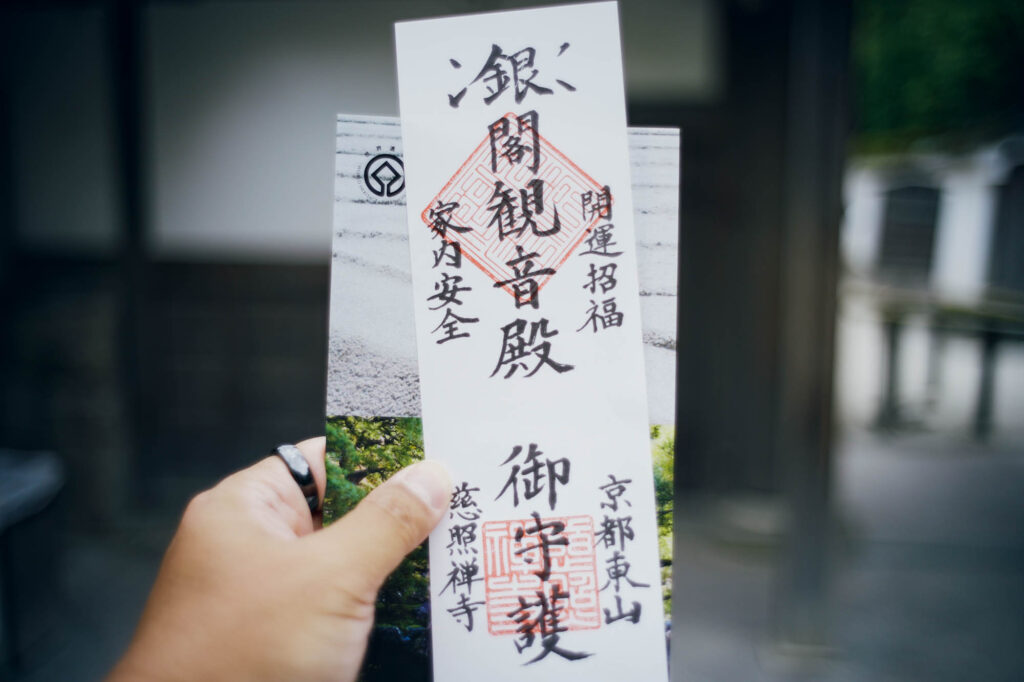 銀閣観音殿 御守護
開運招福
家内安全
京都東山
慈照禅寺